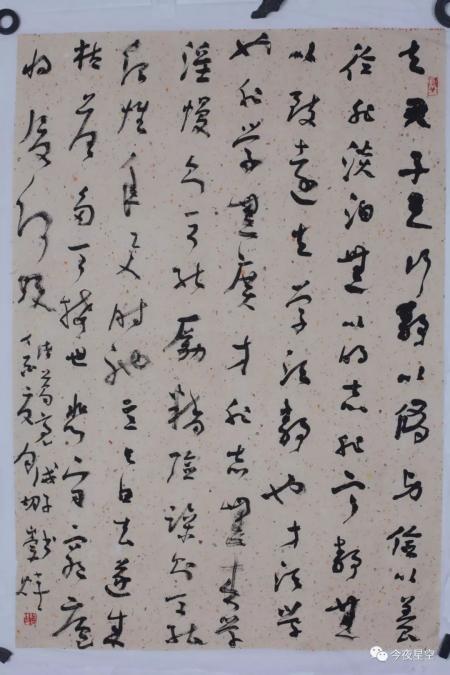 夫君子之行静以修身俭以养
德非淡泊無以明志非宁静無
以致遠夫学须静也才须学
也非学無廣才非志無成学
淫慢则不能励精险躁则不能
治性年与时驰意与日去遂成
枯落多不接世悲守窮廬
将復何及
诸葛亮诫子
今夜星空